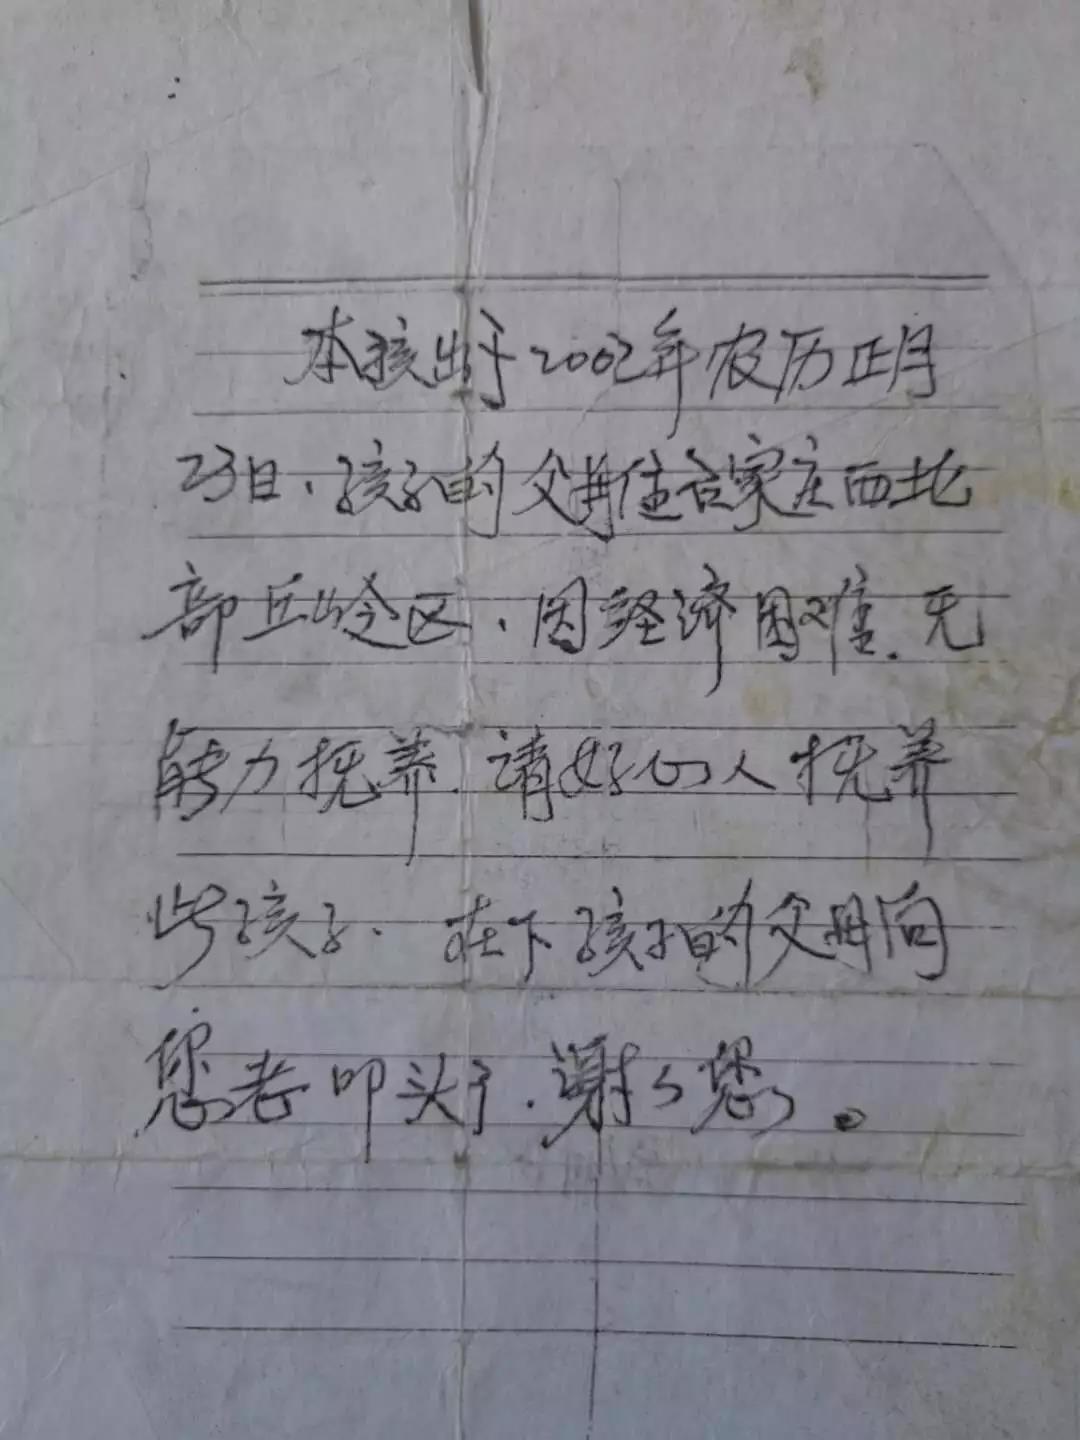 本孩出于2002年农历正月
23日、孩子的父母住石家庄西北
部丘岭区、因经济困难.无
能力抚养.请好心人抚养
此孩子.在下孩子的父母向
您老叩头了.谢了您。